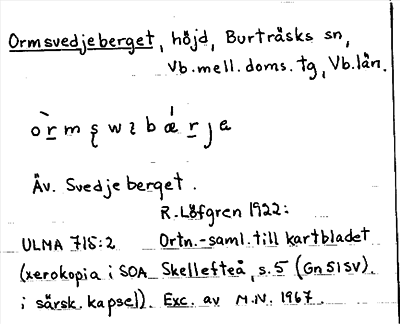 Ormsvedjeberget, höjd, Burträsks sn,
Vb. mell. doms. tg, Vb. län.
Äv. Svedjeberget.
R. Löfgren 1922:
ULMA 715:2 Ortn.-saml. till kartbladet
(xerokopia i SOA Skellefteå, s. 5 (Gn 51 SV).
i särsk. kapsel). Exc. av M.N. 1967.